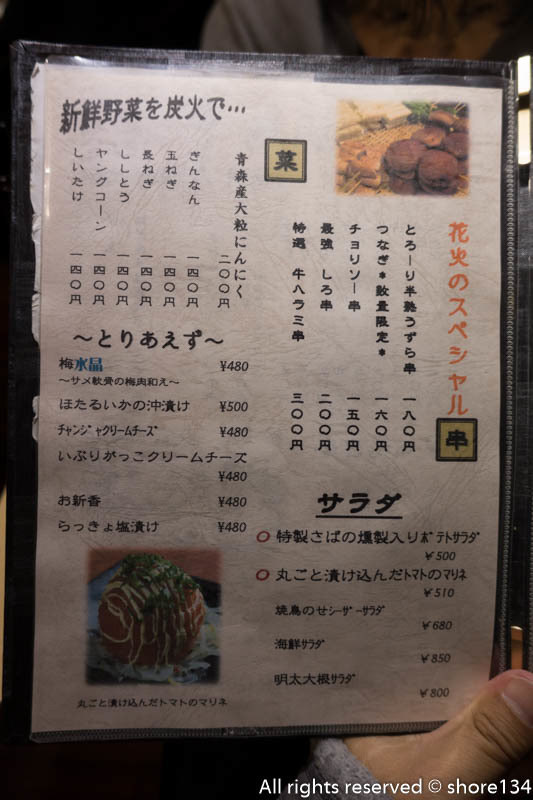 新鮮野菜を炭火で…
菜
青森産大粒にんにく 二〇〇円
ぎんなん 一四〇円
玉ねぎ 一四〇円
長ねぎ 一四〇円
ししとう 一四〇円
ヤングコーン 一四〇円
しいたけ 一四〇円
花火のスペシャル
串
とろーり半熟うずら串 一八〇円
つなぎ*数量限定* 一六〇円
チョリソー串 一五〇円
最強 しろ串 二〇〇円
特選 牛ハラミ串 三〇〇円
～とりあえず～
梅水晶 ¥480
～サメ軟骨の梅肉和え～
ほたるいかの沖漬け ¥500
ﾁｬﾝｼﾞｬｸﾘｰﾑﾁｰｽﾞ ¥480
いぶりがっこクリームチーズ
¥480
お新香 ¥480
らっきょ塩漬け ¥480
丸ごと漬け込んだトマトのマリネ
サラダ
○ 特製さばの燻製入りﾎﾟﾃﾄｻﾗﾀﾞ
￥500
○ 丸ごと漬け込んだﾄﾏﾄのマリネ
￥510
焼鳥のせｼｰｻﾞｰｻﾗﾀﾞ
￥680
海鮮ｻﾗﾀﾞ
￥850
明太大根ｻﾗﾀﾞ
￥800
All rights reserved © shore134